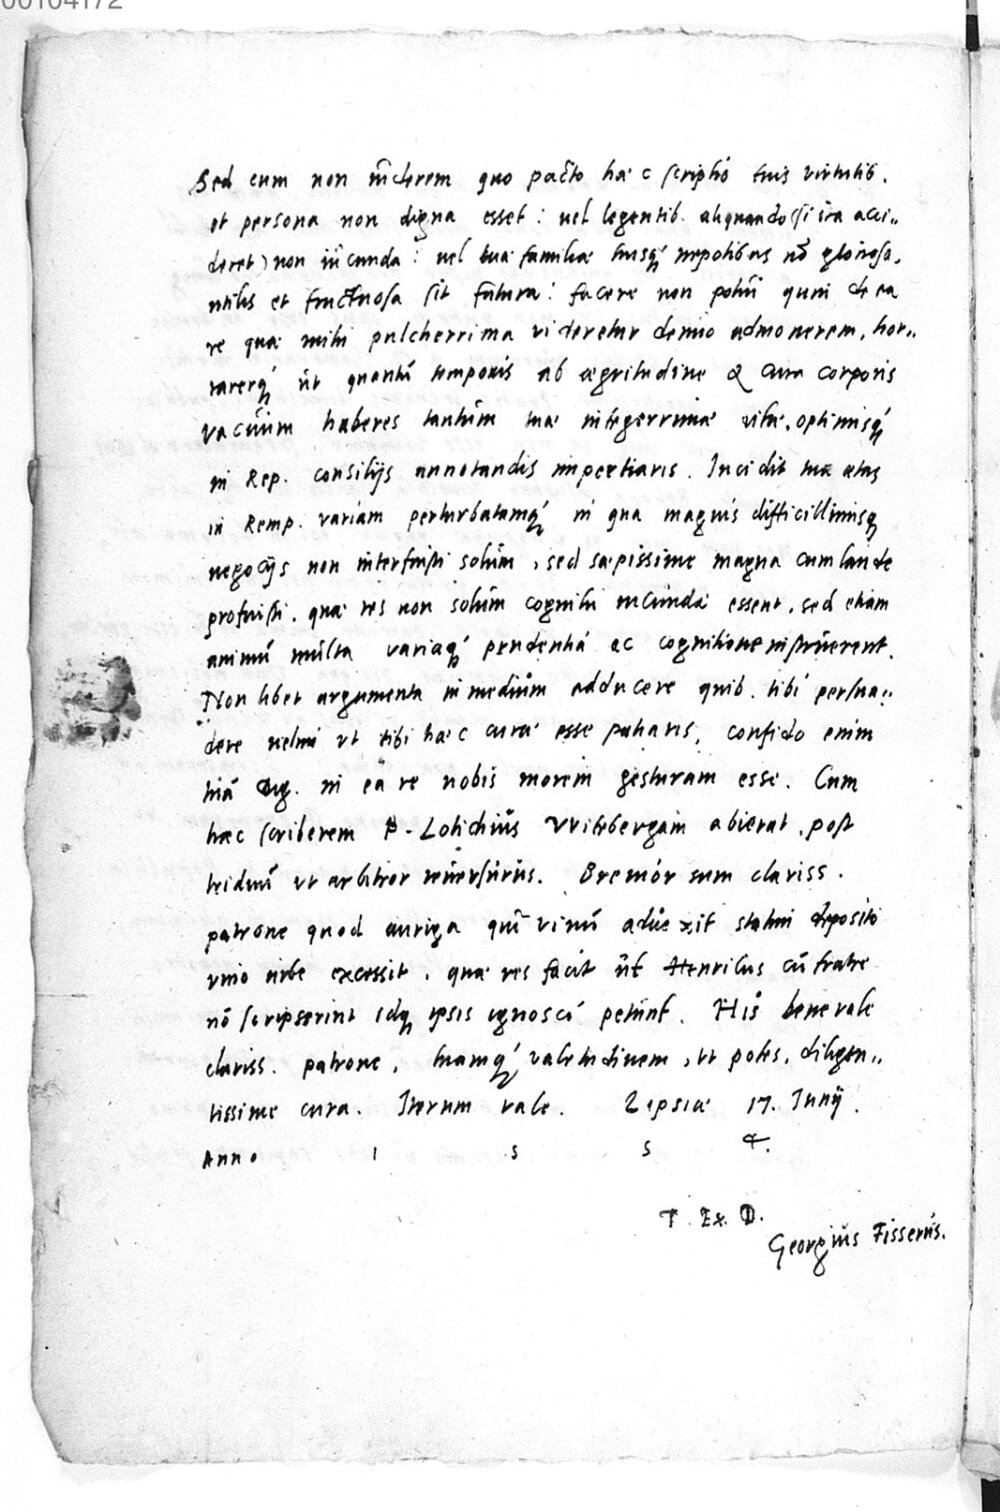 00104172
Sed cum non viderem quo pacto hæc scriptio tuis virtutib.
et persona non digna esset: vel legentib. aliquando (si ita acci„
deret) non iucunda: vel tuæ familiæ tuisq́ nepotibus nō gloriosa,
utilis et fructuosa sit futura: facere non potui quin de ea
re quæ mihi pulcherrima videretur denuo admonerem, hor„
tarerq́ ut quantū temporis ab ægritudine & cura corporis
vacuum haberes tantum tuæ integerrimæ vitæ, optimisq́
in Rep. consilijs annotandis impertiaris. Incidit tua ætas
in Remp. variam perturbatamq́ in qua magnis difficillimisq
negocijs non interfuisti solum, sed sæpissime magna cum laude
profuisti, quæ res non solum cognitu iucundæ essent, sed etiam
animū multa variaq́ prudentia ac cognitione instruerent.
Non libet argumenta in medium adducere quib. tibi persua„
dere velim vt tibi hæc curæ esse patiaris, confido enim
tuā Dig. in eā re nobis morem gesturam esse. Cum
hæc scriberem P. Lotichius VVitebergam abierat, post
triduū vt arbitror reuersurus. Breuior sum clariss.
patrone quod auriga qui vinū aduexit statim deposito
vino urbe excessit, quæ res facit ut Henricus cū fratre
nō scripserint idq ipsis ignosci petunt. His bene vale
clariss. patrone, tuamq́ valetudinem, vt potes, diligen„
tissime cura. Iterum vale. Lipsiæ 17. Iunij.
Anno 1 5 5 4.
T. Ex. D.
Georgius Fisserus.